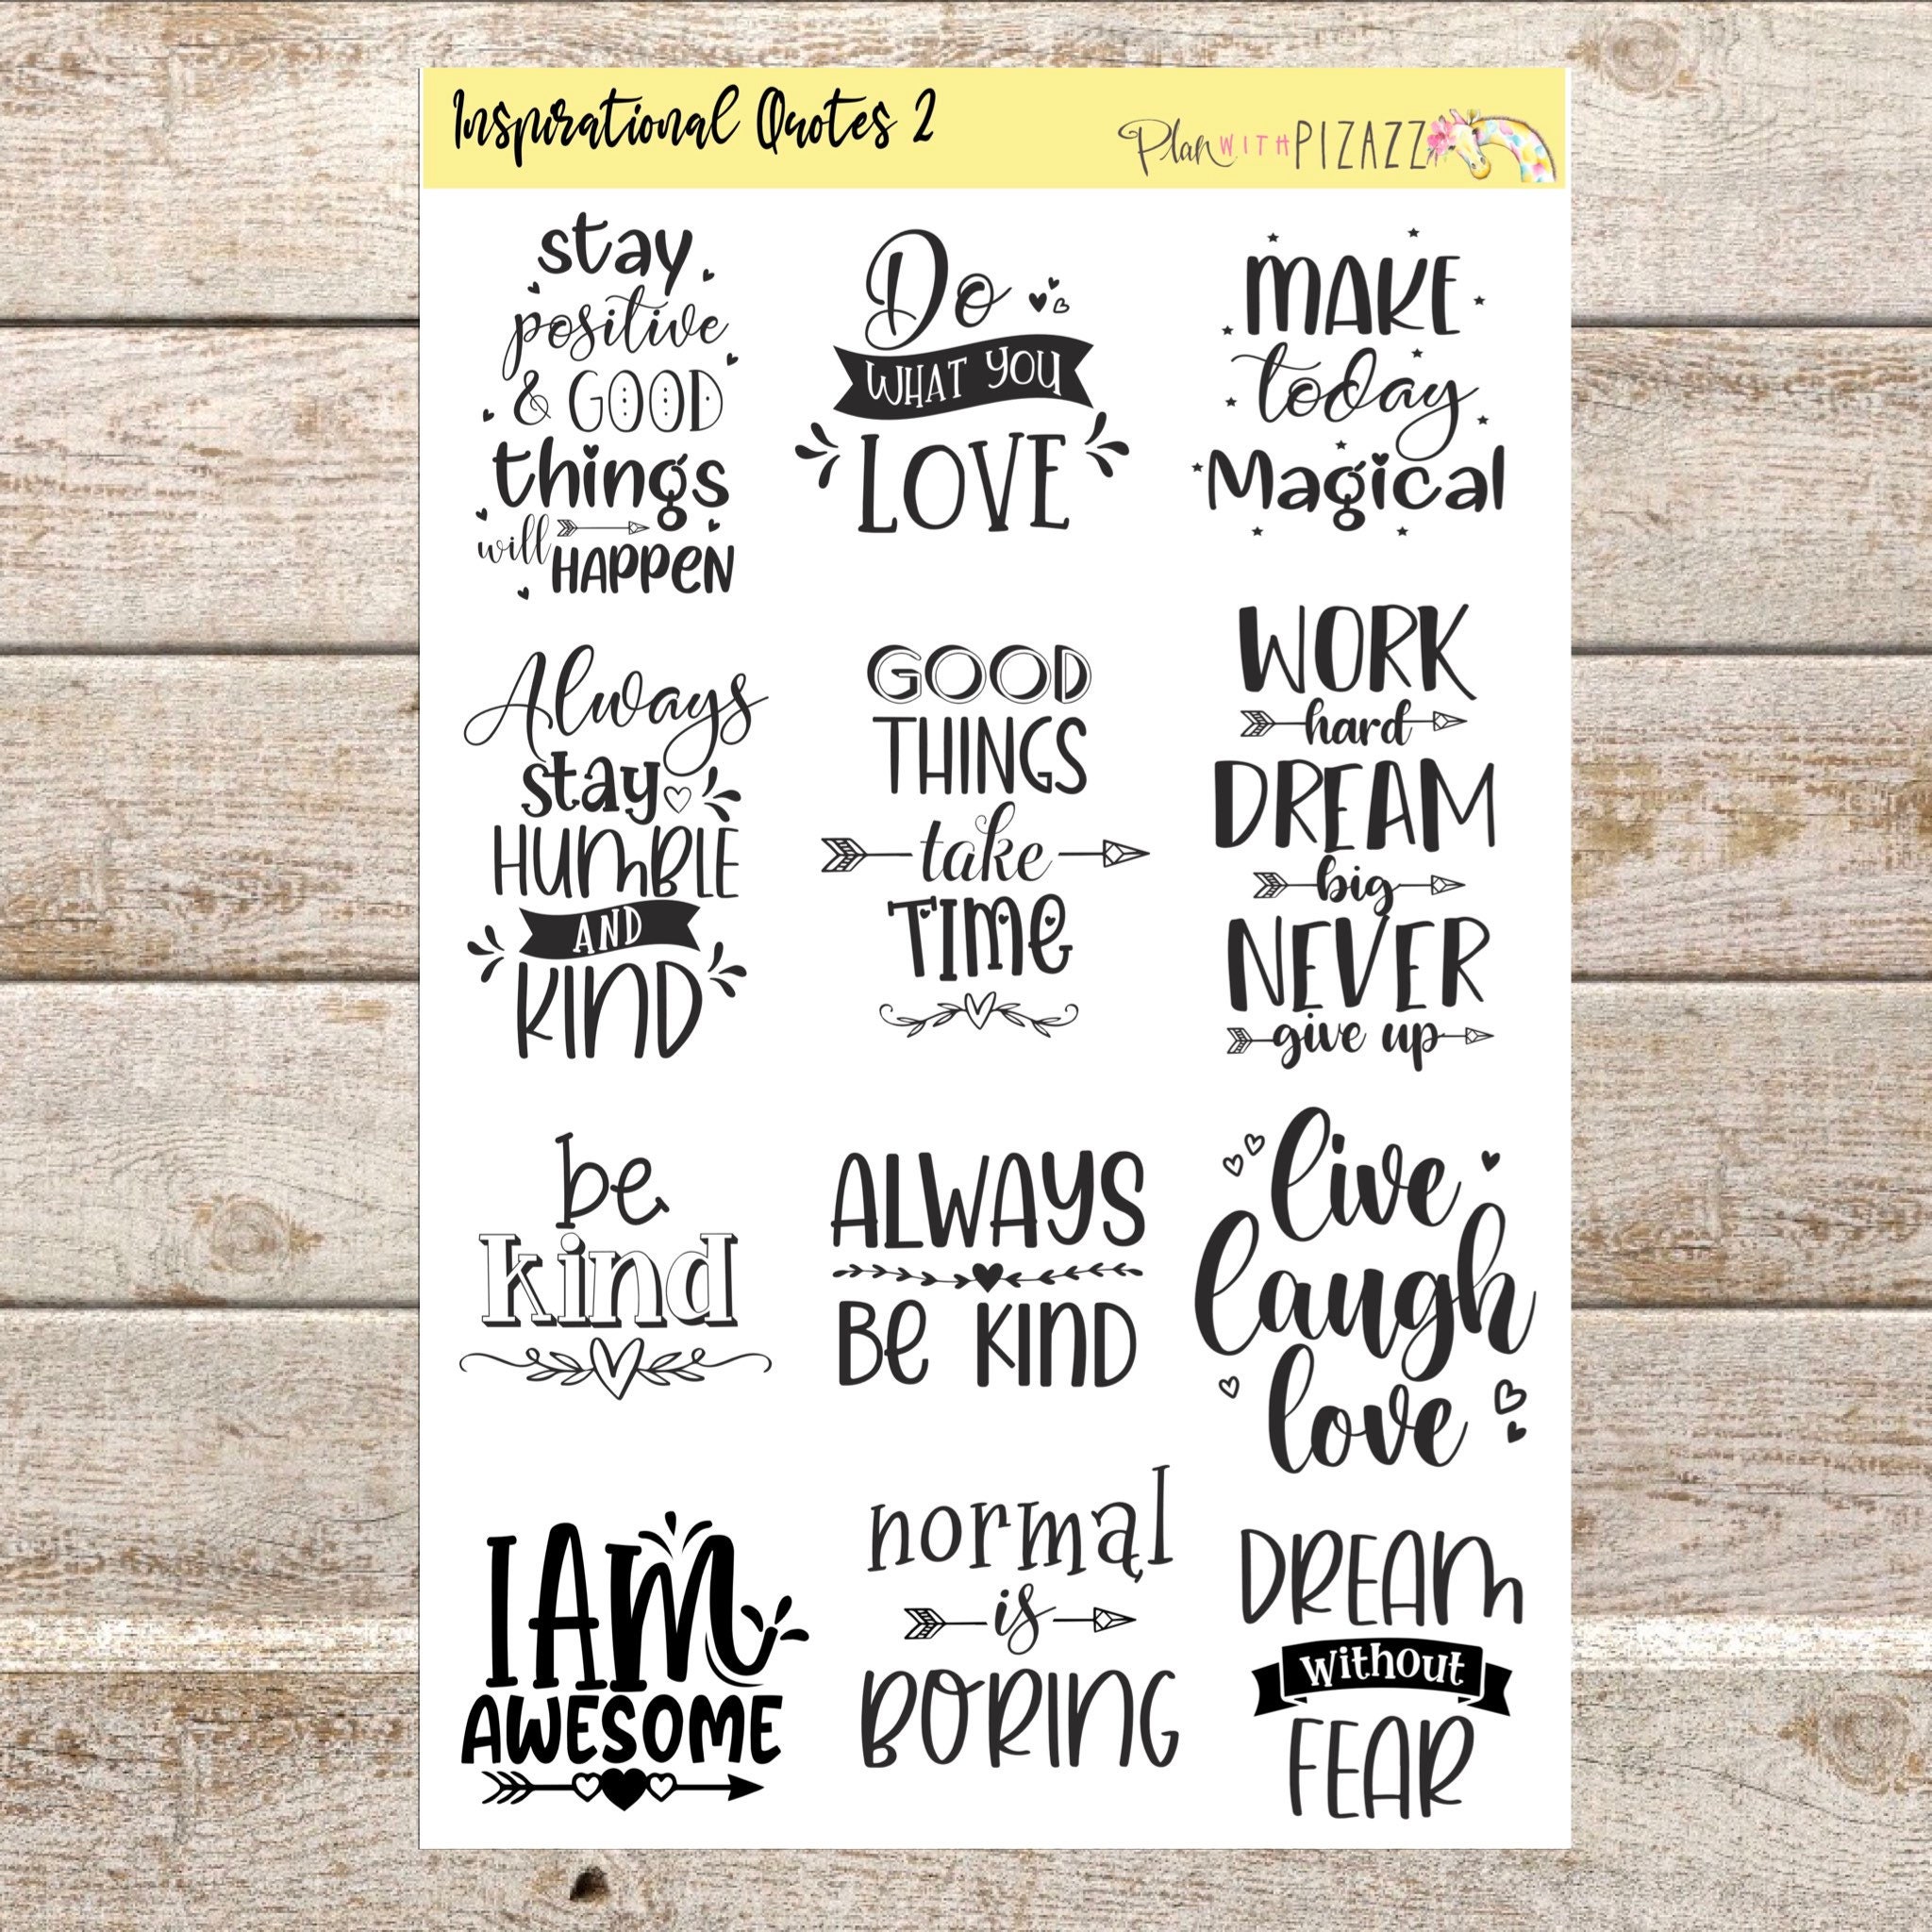 Inspirational Quotes 2
Plan WITH PIZAZZ
stay
positive
& GOOD
things
will HAPPEN
Do
WHAT YOU
LOVE
MAKE
today
Magical
Always
stay
HUMBLE
AND
KIND
GOOD
THINGS
take
TIME
WORK
hard
DREAM
big
NEVER
give up
be
kind
ALWAYS
BE KIND
live
laugh
love
I AM
AWESOME
normal
is
BORING
DREAM
without
FEAR